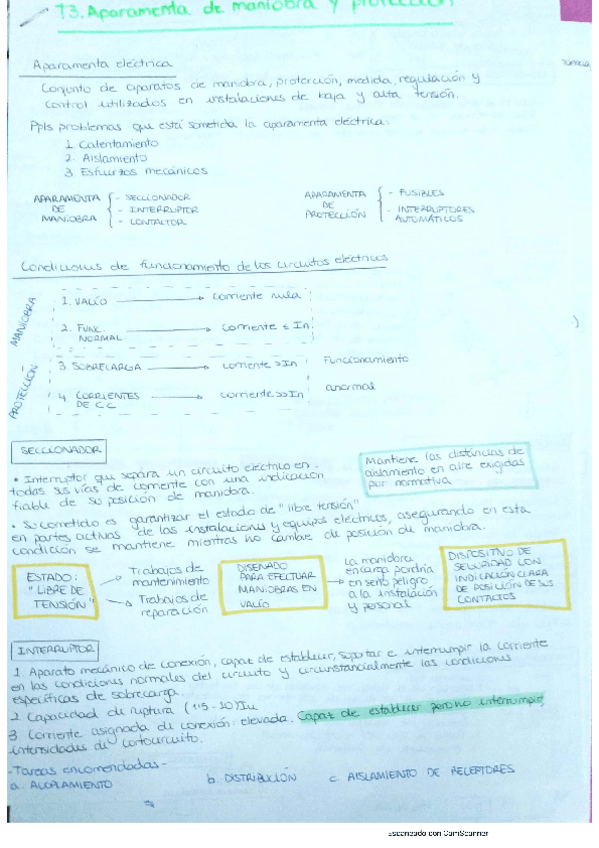 T3. Aparamenta de maniobra y protección
Aparamenta eléctrica
Conjunto de aparatos de maniobra, protección, medida, regulación y
control utilizados en instalaciones de baja y alta tensión.
Ppls problemas que está sometida la aparamenta eléctrica:
1. Calentamiento
2. Aislamiento
3 Esfuerzos mecánicos
APARAMENTA DE MANIOBRA
- SECCIONADOR
- INTERRUPTOR
- CONTACTOR
APARAMENTA DE PROTECCIÓN
- FUSIBLES
- INTERRUPTORES
AUTOMÁTICOS
Condiciones de funcionamiento de los circuitos eléctricos
MANIOBRA
1. VACÍO → corriente nula
2. FUNC. NORMAL → corriente ≤ In
PROTECCIÓN
3 SOBRECARGA → corriente >In
4 CORRIENTES DE CC → corriente >>In
Funcionamiento
anormal
SECCIONADOR
• Interruptor que separa un circuito eléctrico en
todas sus vías de corriente con una indicación
fiable de su posición de maniobra.
Mantiene las distancias de
aislamiento en aire exigidas
por normativa
• Su cometido es garantizar el estado de "libre tensión"
en partes activas de las instalaciones y equipos eléctricos, asegurando en esta
condición se mantiene mientras no cambie de posición de maniobra.
ESTADO:
"LIBRE DE
TENSIÓN"
Trabajos de
mantenimiento
Trabajos de
reparación
DISEÑADO
PARA EFECTUAR
MANIOBRAS EN
VACÍO
La maniobra
en carga pondría
en serio peligro
a la instalación
y personal
DISPOSITIVO DE
SEGURIDAD CON
INDICACIÓN CLARA
DE POSICIÓN DE SUS
CONTACTOS
INTERRUPTOR
1. Aparato mecánico de conexión, capaz de establecer, soportar e interrumpir la corriente
en las condiciones normales del circuito y circunstancialmente las condiciones
específicas de sobrecarga.
2 Capacidad de ruptura (1'5 - 10)In
3 Corriente asignada de conexión: elevada. Capaz de establecer pero no interrumpir
intensidades de cortocircuito.
- Tareas encomendadas -
a. ACOPLAMIENTO b. DISTRIBUCIÓN c. AISLAMIENTO DE RECEPTORES
Escaneado con CamScanner